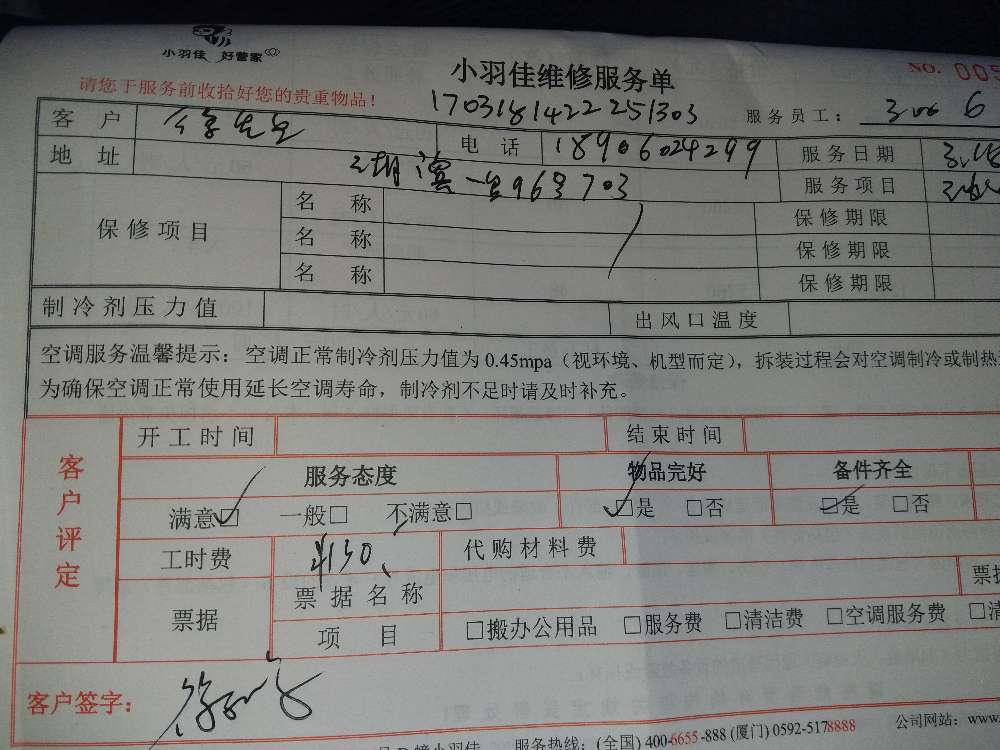 小羽佳 好管家
小羽佳维修服务单
NO. 005
请您于服务前收拾好您的贵重物品！
17031814222251303
服务员工： 6
客户 先生 电话 18906024299 服务日期
地址 湖滨一里96号703 服务项目
保修项目 名称 保修期限
名称 保修期限
名称 保修期限
制冷剂压力值 出风口温度
空调服务温馨提示：空调正常制冷剂压力值为0.45mpa（视环境、机型而定），拆装过程会对空调制冷或制热
为确保空调正常使用延长空调寿命，制冷剂不足时请及时补充。
客户评定
开工时间 结束时间
服务态度 物品完好 备件齐全
满意□ 一般□ 不满意□ □是 □否 □是 □否
工时费 ¥130、 代购材料费
票据 票据名称 票据
项目 □搬办公用品 □服务费 □清洁费 □空调服务费 □清
客户签字：
小羽佳 服务热线：(全国) 400-6655-888 (厦门) 0592-5178888 公司网站：www.